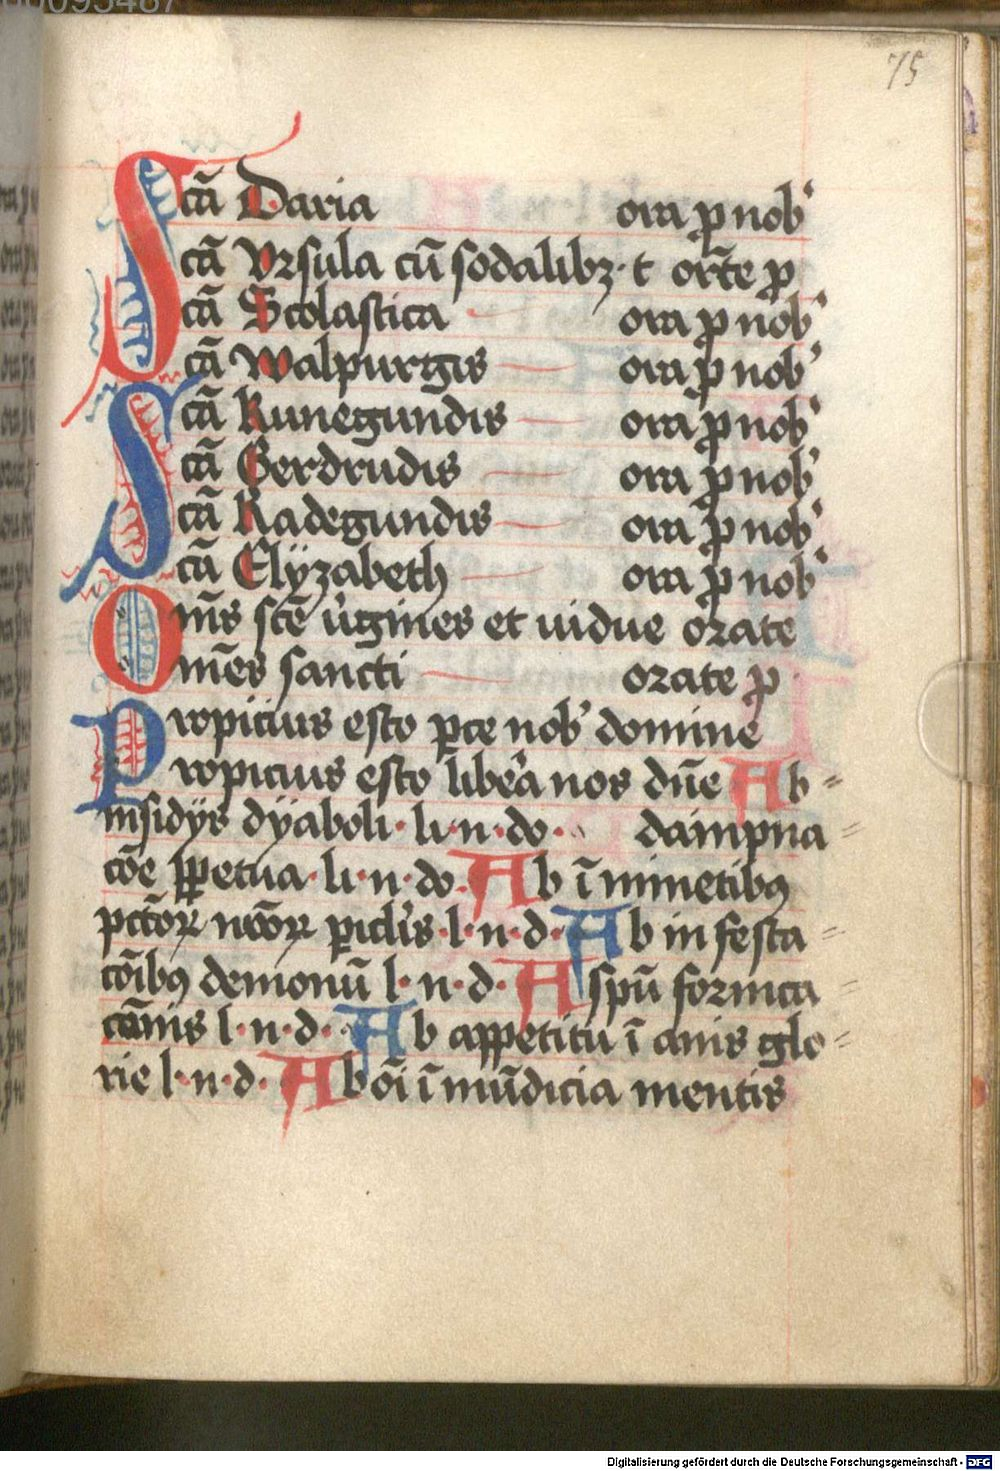 00095487
75
Scā Daria ora ꝓ nobꝰ
Scā Vrsula cū sodalibꝫ· t orīte ꝓ
Scā Scolastica ora ꝓ nobꝰ
Scā walpurgis ora ꝓ nobꝰ
Scā Kunegundis ora ꝓ nobꝰ
Scā Gerdrudis ora ꝓ nobꝰ
Scā Radegundis ora ꝓ nobꝰ
Scā Elÿzabeth ora ꝓ nobꝰ
Om̄s scē u̓gines et uidue orate
Om̄es sancti orate ꝓ
Propicius esto ꝑce nobꝰ domine
Propicius esto libe̓a nos dn̄e Ab
insidÿs dÿaboli· li· n· do· dampna
cōe ꝑpetua· li· n· do· Ab īminētibꝯ
pctōꝝ nr̄oꝝ ꝑicl̓is· l· n· d· Ab infesta
cōibꝯ demonū l· n· d· A spū fornica
cōnis l· n· d· Ab appetitu īanis glo
rie l· n· d· Ab oī īmūdicia mentis
Digitalisierung gefördert durch die Deutsche Forschungsgemeinschaft - DFG